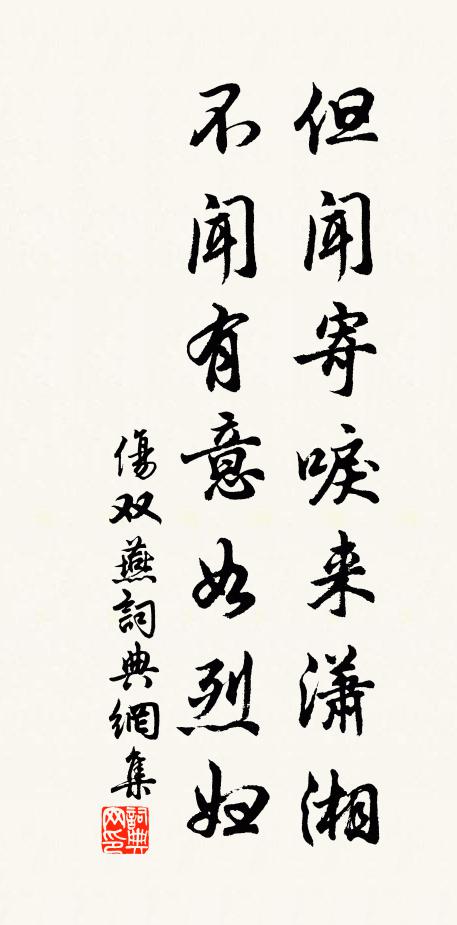 但闻寄唳来潇湘
不闻有意如烈妇
傷双燕詞典網集
詞典网印